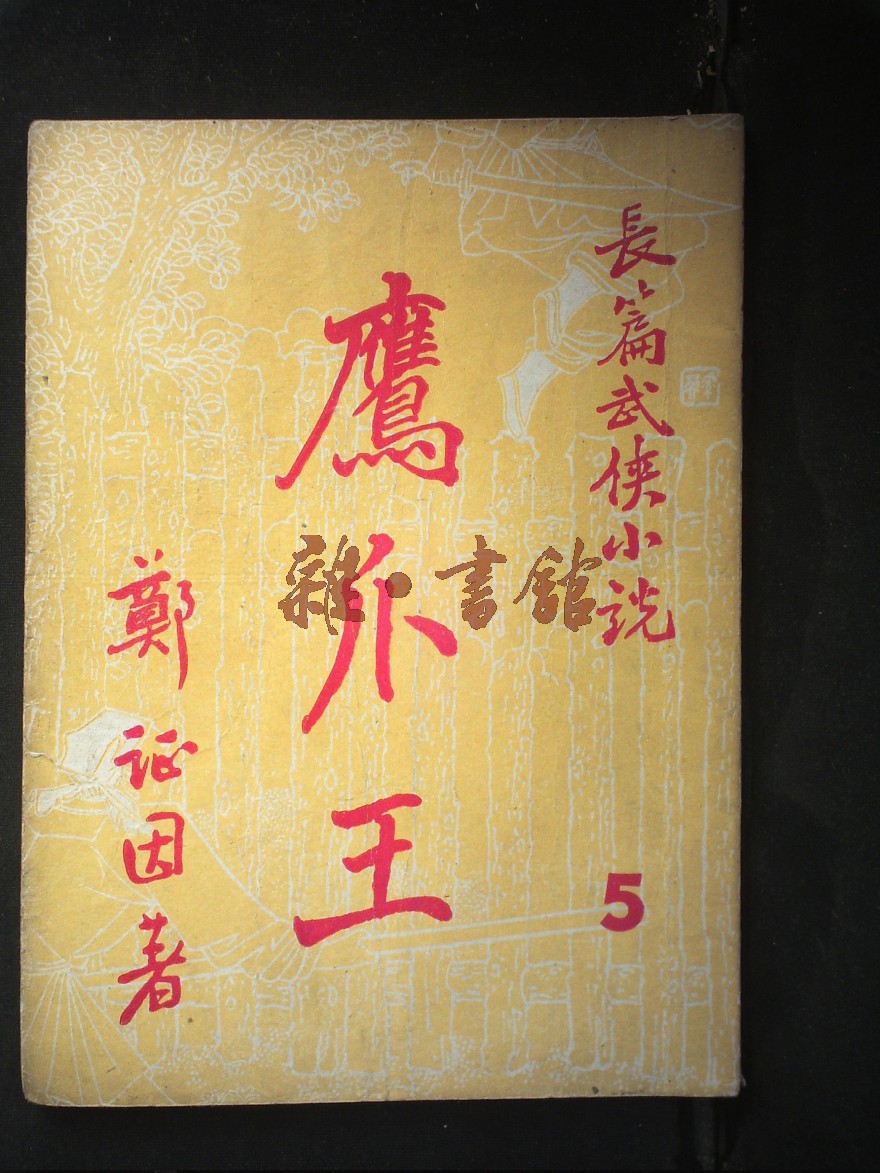 長篇武俠小説
鷹爪王
鄭証因著
5
雜·書館